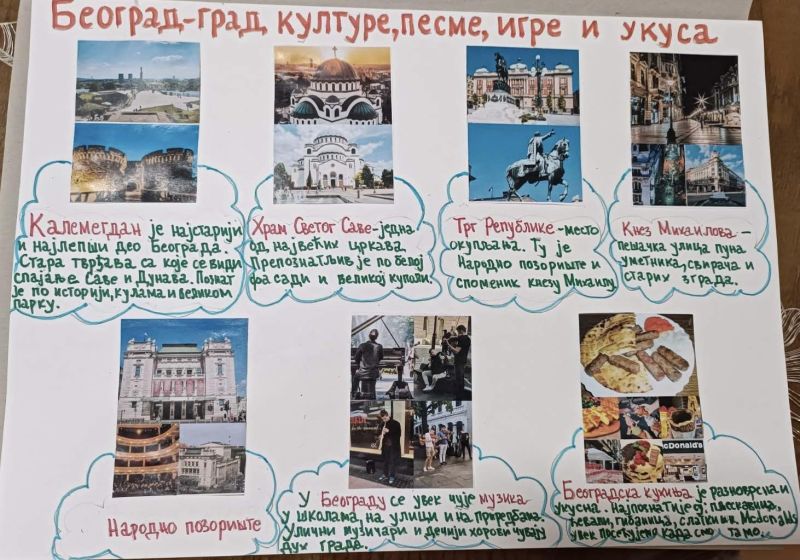 Београд-град културе, песме, игре и укуса
Калемегдан је најстарији
и најлепши део Београда.
Стара тврђава са које се види
спајање Саве и Дунава. Познат
је по историји, кулама и великом
парку.
Храм Светог Саве-једна
од највећих цркава.
Препознатљив је по белој
фасади и великој куполи.
Трг Републике-место
окупљања. Ту је
Народно позориште и
споменик кнезу Михаилу
Кнез Михаилова-
пешачка улица пуна
уметника, свирача и
старих зграда.
Народно позориште
У Београду се увек чује музика
у школама, на улици и на приредбама.
Улични музичари и дечији хорови чувају
дух града.
McDonald's
Београдска кухиња је разноврсна и
укусна. Најпознатије су: пљескавица,
ћевапи, гибаница, слаткиши. McDonalds
увек посећујемо када смо тамо.